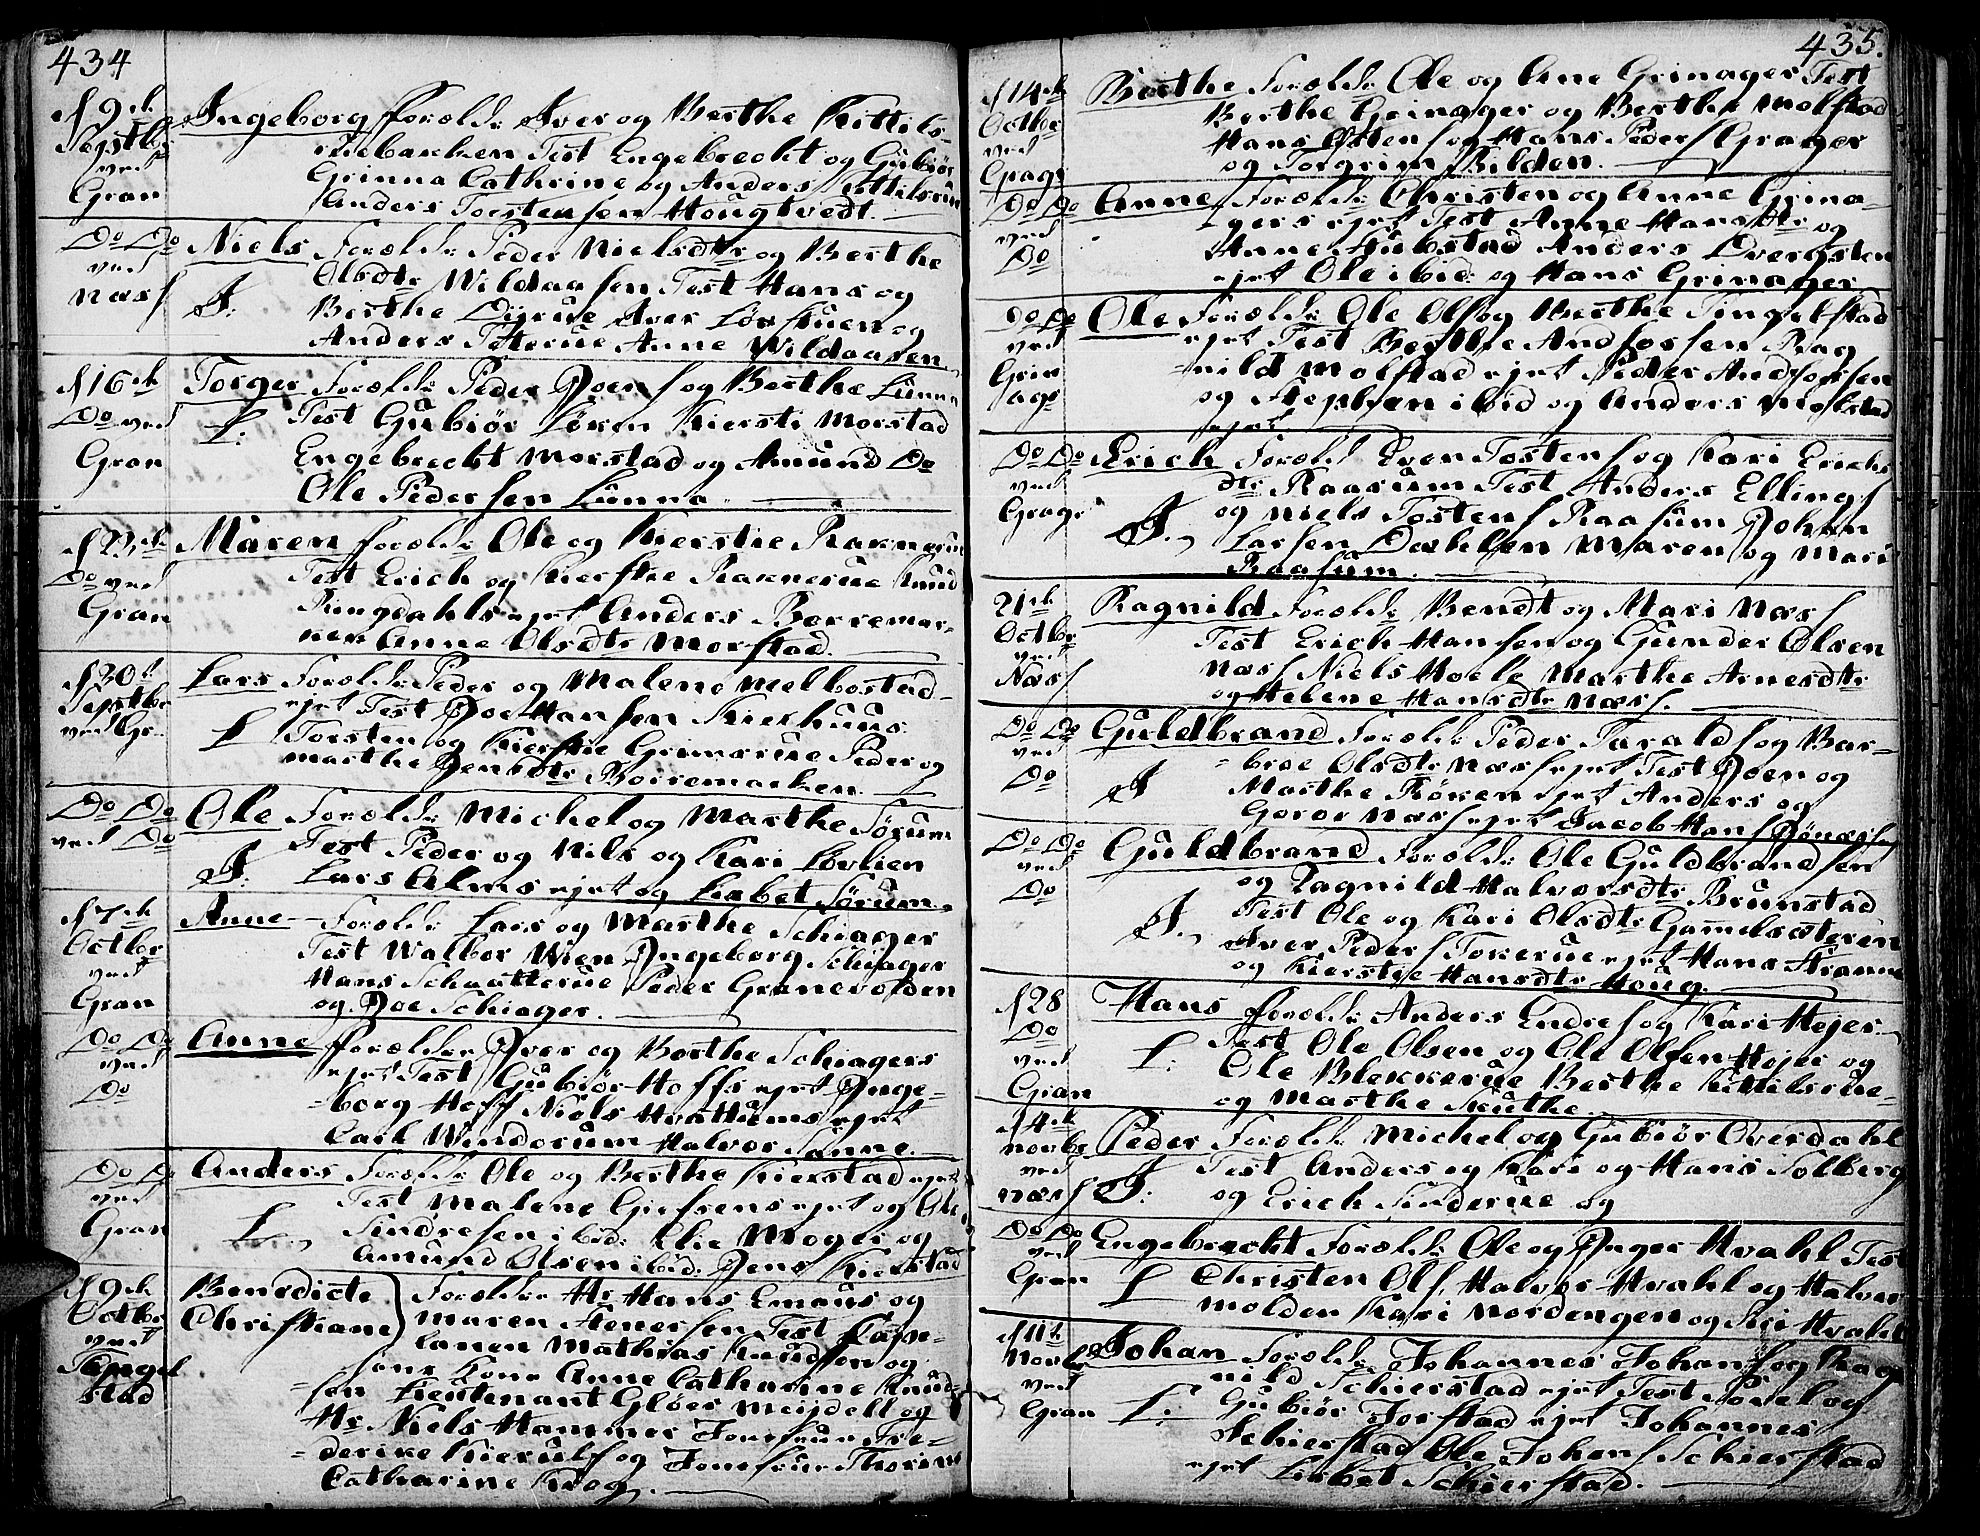 434
d 9de Septbr ved Gran
Ingeborg Foreldr. Iver og Berthe Kittils-
ruebakken Test Engebrecht og Gubiør
Grinna Cathrine og Anders Kittilsrue
Anders Torstensen Hougtvedt.
Do Do ved Næss
Niels Foreldr. Peder Nielsdtr og Berthe
Olsdtr Wildaasen Test Hans og
I: Birthe Diirue Iver Lør Stuen og
Anders Teterue Anne Wildaasen.
d 16de Do ved Gran
Torger Foreldr. Peder Joens. og Berthe Lunna
L: Test Gubiør Løken Kiersti Morstad
Engebrecht Morstad og Amund Do
Ole Pedersen Lunna.
d 23de Do ved Gran
Maren Foreldr. Ole og Kierstie Raknerue
Test Erich og Kierstie Raknerue Knud
Ringdahls ejet Anders Borremar-
ken Anne Olsdtr Morstad.
d 30t Septbr ved Gr.
Lars Foreldr. Peder og Malene Melbostad-
ejet Test Joe Hansen Kiekhuus
L Torsten og Kierstie Grimsrue Peder og
Marthe Jensdtr Borremarken.
Do Do ved Do
Ole Foreldr. Michel og Marthe Sørum
Test Peder og Nils og Kari Lovlien
I: Lars Alms ejet og Lisbet Sørum.
d 7de Octbr ved Gran
Anne Foreldr. Lars og Marthe Schiager
Test Walbor Wien Ingeborg Schiager
Hans Schautterue Peder Granevolden
og Joe Schiager.
Do Do ved Do
Anne Foreldre Iver og Berthe Schiagers
ejet Test Gubiør Hoffs ejet Inge-
borg Hoff Niels Hvattums ejet
Carl Windorum Halvor Sanne.
Do Do ved Gran
Anders Foreldr. Ole og Berthe Kierstad ejet
Test Malene Giefsens ejet og Ole
L. Sindresen ibid: Elie Moger og
Amund Olsen ibid: Jens Kierstad
d 9de Octbr ved Tingelstad
Benedicte Christiane Foreldre Hr Hans Emaus og
Maren Stenersen Test Cape-
lanen Mathias Knudsen og
hans Kone Anne Catharine Knud-
sen Lieutenant Gløer Meijdell og
Hr Niels Hammer Jomfrue Fre-
derike Kierulf og Jomfrue Thorine
Catharine Krog.
435.
d 14de Octbr ved Grinager
Berthe Foreldr. Ole og Ane Grinager Test
Berthe Grinager og Berthe Molstad
Hans Østens. og Hans Peders. Grager
og Torgrim Bilden.
Do Do ved Do
Anne Foreldr. Christen og Anne Grina-
gers ejet Test Anne Hansdtr og
Anne Hubstad Anders Dvergsten
ejet Ole ibid: og Hans Grinager.
Do Do ved Grinager
Ole Foreldr. Ole Ols. og Berthe Tingelstad
ejet Test Berthe Andforsen Rag
nild Molstad ejet Peder Andforsen
og Stephen ibid og Anders Molstad
ejet.
Do Do ved Grager
Erich Foreldr Even Tostens. og Kari Erichs
dtr Raasum Test Anders Ellings.
og Niels Tostens. Raasum Johan
I. Larsen Dæhlen Maren og Mari
Raasum.
21de Octbr ved Næss
Ragnild Foreldr. Bendt og Mari Næss
Test Erich Hansen og Gunder Olsen
Næss Niels Hoele Marthe Arnesdtr
og Helene Hansdtr Næss.
Do Do ved Do
Guldbrand Foreldr. Peder Taralds. og Bar-
broe Olsdtr Næss ejet Test Joen og
I Marthe Røken ejet Anders og
Goror Næss ejet Jacob Hans.
Do Do ved Do
Guldbrand Foreldr. Ole Guldbrandsen
og Ragnild Halvorsdtr Brunstad
I. Test Ole og Kari Olsdtr Gamelsæteren
Iver Peders. Tokerue ejet Hans Stranne
og Kierstie Hansdtr Houg.
d 28 Do ved Gran
Hans Foreldr. Anders Endres. og Kari Hejer
L: Test Ole Olsen og Ole Olsen Hejer og
Ole Blekkerue Berthe Kittelsrue
og Marthe Skuthe.
d 4de Novbr ved Næss
Peder Foreldr. Michel og Gubiør Overdahl
I: Test Anders og Kari og Hans Solberg
og Erich Sinderue og
Do Do ved Gran
Engebrecht Foreldr. Ole og Inger Hvahl Test
L Christen Ols. Halvor Hvahl og Halvor
Molden Kari Nordengen og Siri Hvahl
d 11t Novbr ved Gran
Johan Foreldr. Johannes Johans. og Rag
nild Schierstad ejet Test Povel og
L: Gubiør Jorstad ejet Johannes
Schierstad Ole Johans. Schierstad
ejet Lisbet Schierstad.